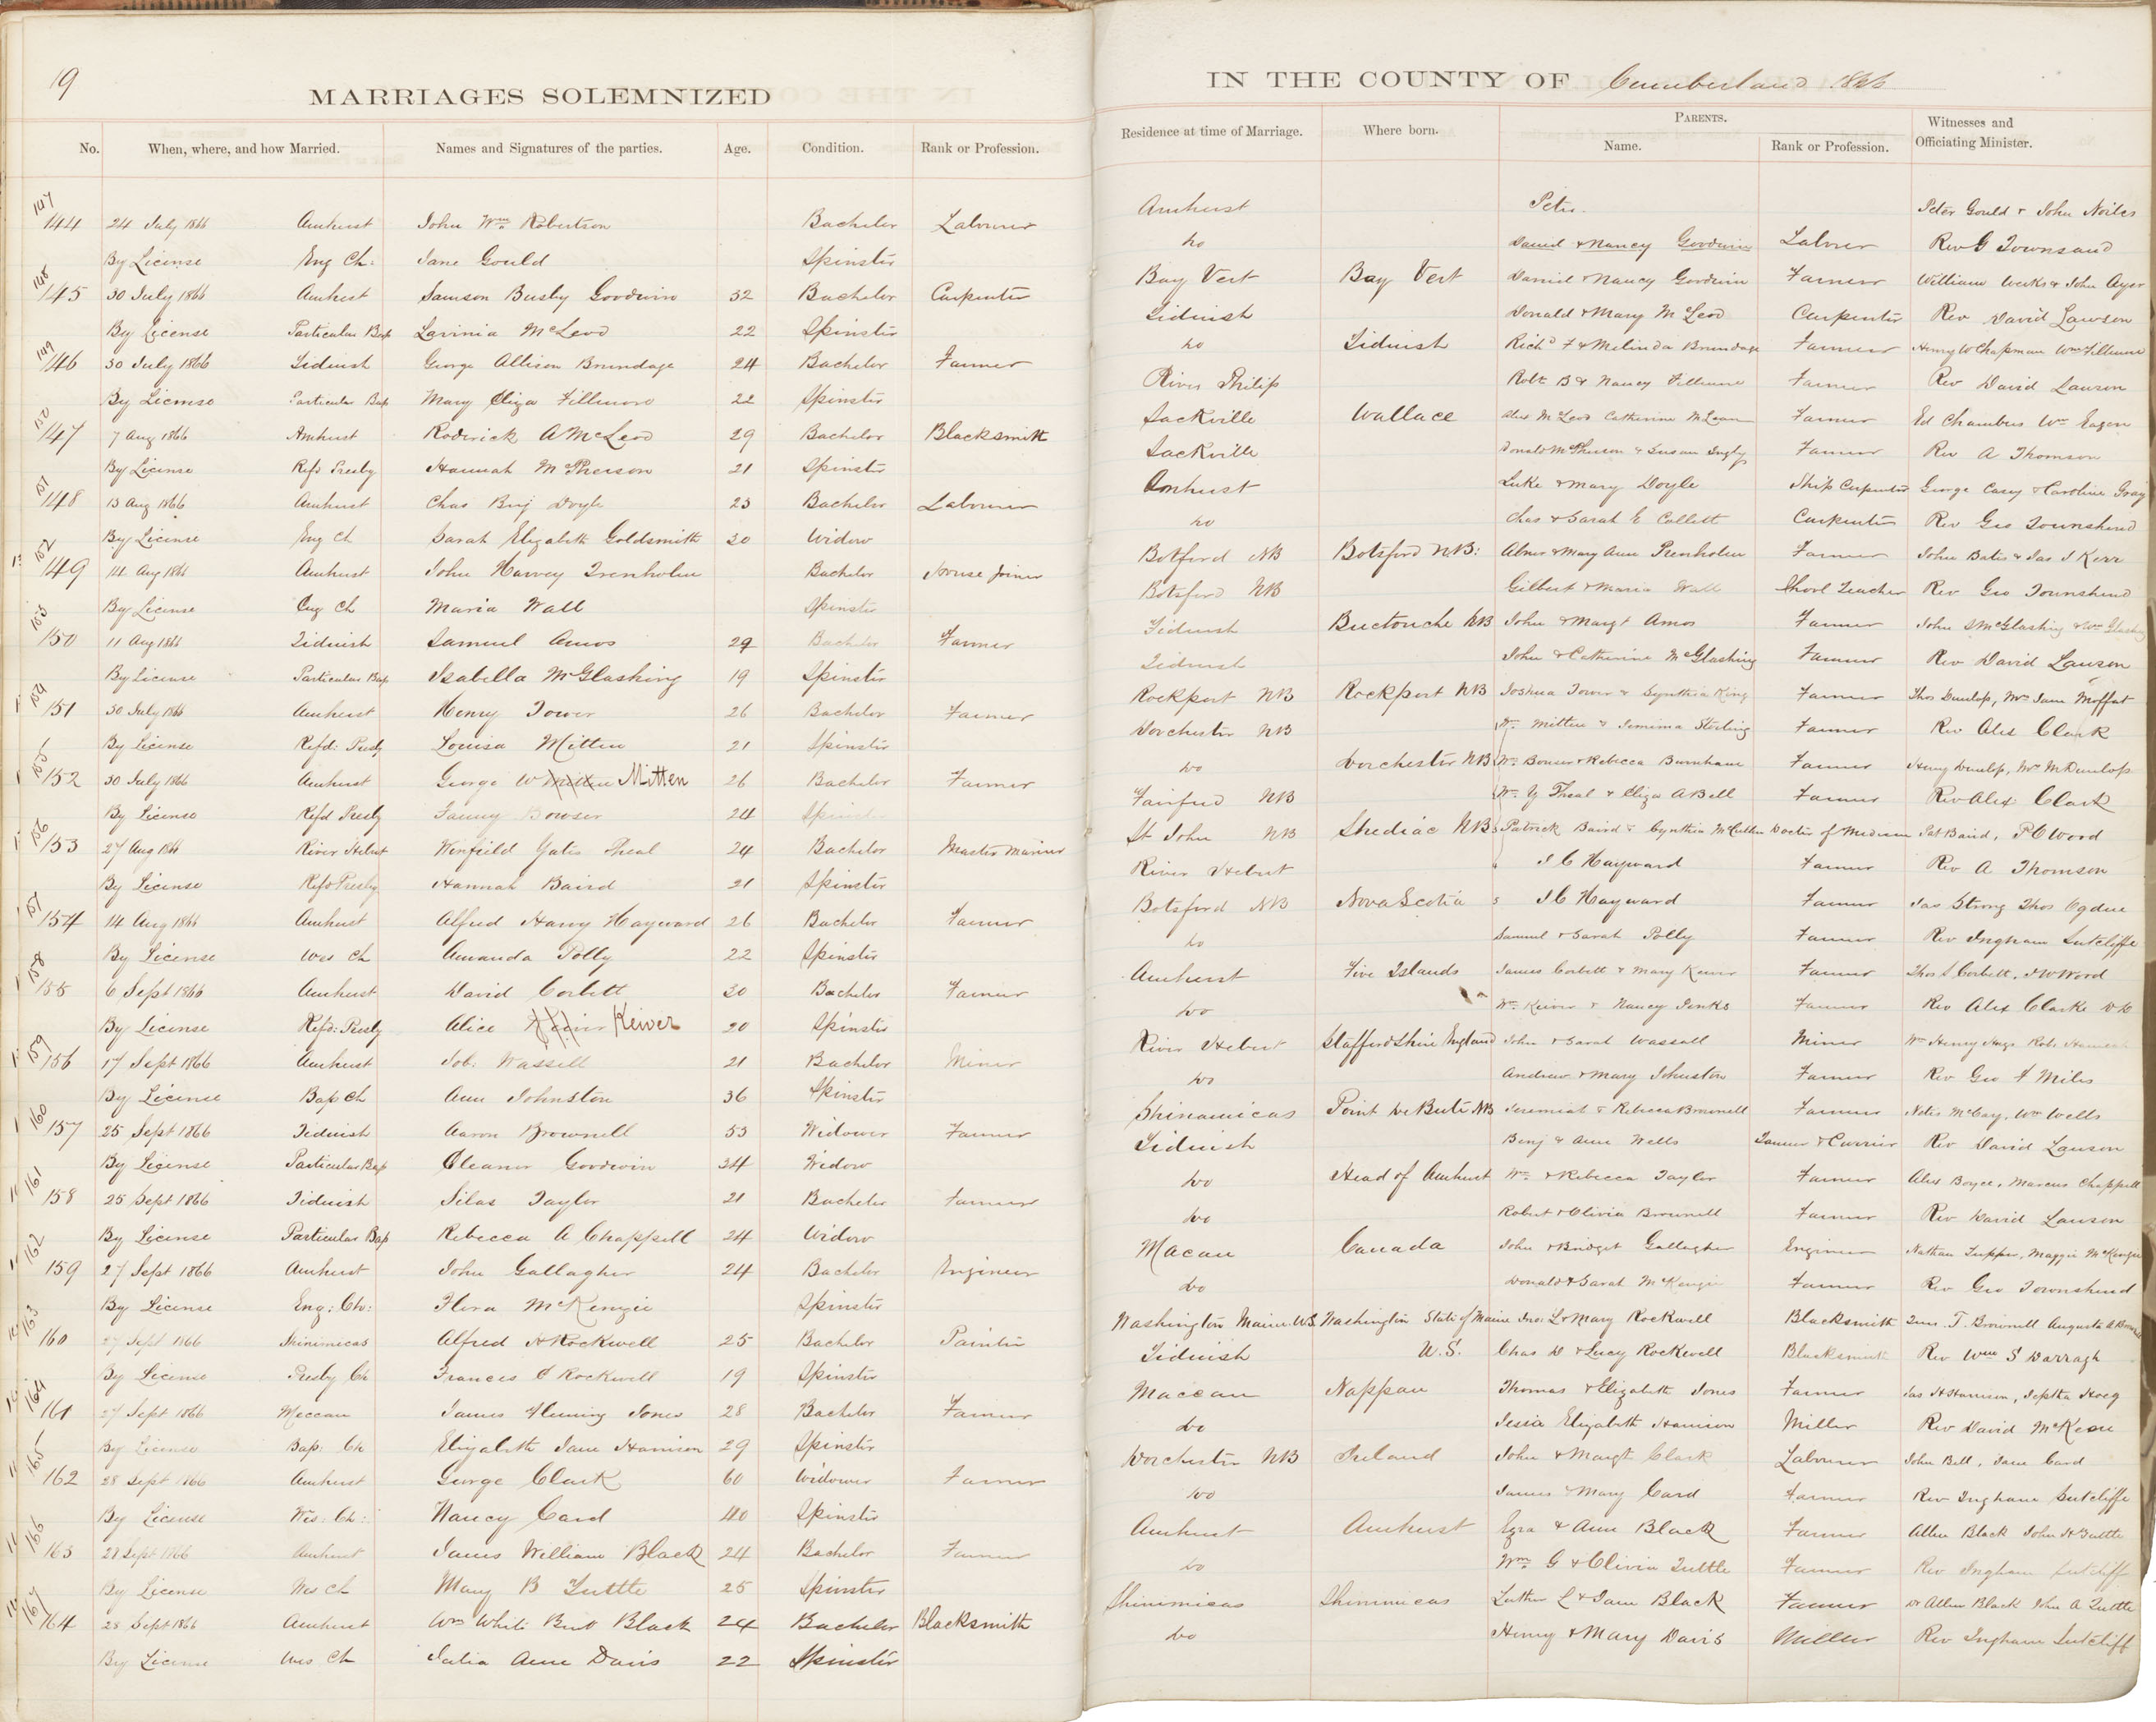 19
MARRIAGES SOLEMNIZED
No. When, where, and how Married. Names and Signatures of the parties. Age. Condition. Rank or Profession.
147
144 24 July 1866 Amherst John Wm Robertson Bachelor Labourer
By License Eng Ch: Jane Gould Spinster
148
145 30 July 1866 Amherst Samson Busby Goodwin 32 Bachelor Carpenter
By License Particular Bap Lavinia McLeod 22 Spinster
149
146 30 July 1866 Tidnish George Allison Brundage 24 Bachelor Farmer
By License Particular Bap Mary Eliza Fillmore 22 Spinster
150
147 7 Aug 1866 Amherst Roderick A McLeod 29 Bachelor Blacksmith
By License Refd Presby Hannah McPherson 21 Spinster
151
148 13 Aug 1866 Amherst Chas Benj Doyle 23 Bachelor Labourer
By License Eng Ch Sarah Elizabeth Goldsmith 30 Widow
152
149 14 Aug 1866 Amherst John Harvey Trenholm Bachelor House Joiner
By License Eng Ch Maria Wall Spinster
153
150 11 Aug 1866 Tidnish Samuel Amos 29 Bachelor Farmer
By License Particular Bap Isabella McGlashing 19 Spinster
154
151 30 July 1866 Amherst Henry Tower 26 Bachelor Farmer
By License Refd: Presby Louisa Mitten 21 Spinster
155
152 30 July 1866 Amherst George W Mitten 26 Bachelor Farmer
By License Refd Presby Fanny Bowser 24 Spinster
156
153 27 Aug 1866 River Hebert Winfield Yates Theal 24 Bachelor Master Mariner
By License Refd Presby Hannah Baird 21 Spinster
157
154 14 Aug 1866 Amherst Alfred Harry Hayward 26 Bachelor Farmer
By License Wes Ch Amanda Polly 22 Spinster
158
155 6 Sept 1866 Amherst David Corbett 30 Bachelor Farmer
By License Refd: Presby Alice Keiver 20 Spinster
159
156 17 Sept 1866 Amherst Job: Wassell 21 Bachelor Miner
By License Bap Ch Ann Johnston 36 Spinster
160
157 25 Sept 1866 Tidnish Aaron Brownell 53 Widower Farmer
By License Particular Bap Eleanor Goodwin 34 Widow
161
158 25 Sept 1866 Tidnish Silas Taylor 21 Bachelor Farmer
By License Particular Bap Rebecca A Chappell 24 Widow
162
159 27 Sept 1866 Amherst John Gallagher 24 Bachelor Engineer
By License Eng: Ch: Flora McKenzie Spinster
163
160 27 Sept 1866 Shinimicas Alfred H Rockwell 25 Bachelor Painter
By License Presby Ch Frances C Rockwell 19 Spinster
164
161 27 Sept 1866 Maccan James Fleming Jones 28 Bachelor Farmer
By License Bap: Ch Elizabeth Jane Harrison 29 Spinster
165
162 28 Sept 1866 Amherst George Clark 60 Widower Farmer
By License Wes: Ch: Nancy Card 40 Spinster
166
163 28 Sept 1866 Amherst James William Black 24 Bachelor Farmer
By License Wes Ch Mary B Tuttle 25 Spinster
167
164 28 Sept 1866 Amherst Wm White Bent Black 24 Bachelor Blacksmith
By License Wes Ch Julia Ann Davis 22 Spinster
IN THE COUNTY OF Cumberland 1866
Residence at time of Marriage. Where born. PARENTS. Name. Rank or Profession. Witnesses and Officiating Minister.
Amherst Peter. Peter Gould & John Noiles
Do Daniel & Nancy Goodwin Labourer Rev G Townsand
Bay Vert Bay Vert Daniel & Nancy Goodwin Farmer William Weeks & John Ayer
Tidnish Donald & Mary McLeod Carpenter Rev David Lawson
Do Tidnish Richd F & Melinda Brundage Farmer Henry W Chapman Wm Fillmore
River Philip Robt B & Nancy Fillmore Farmer Rev David Lawson
Sackville Wallace Alex McLeod Catherine McLean Farmer Ed Chambers Wm Eagen
Sackville Donald McPherson & Susan Farmer Rev A Thomson
Amherst Luke & Mary Doyle Ship Carpenter George Casey & Caroline Gray
Do Chas & Sarah E Collett Carpenter Rev Geo Townshend
Botford NB Botsford NB: Abner & Mary Ann Trenholm Farmer John Bates & Jas J Kerr
Botsford NB Gilbert & Maria Wall School Teacher Rev Geo Townshend
Tidnish Buctouche NB John & Margt Amos Farmer John S McGlashing & Wm Glashing
Tidnish John & Catherine McGlashing Farmer Rev David Lawson
Rockport NB Rockport NB Joshua Tower & Cynthia King Farmer Thos Dunlop, Mrs Jane Moffat
Dorchester NB Wm Mitten & Jemima Sterling Farmer Rev Alex Clark
Do Dorchester NB Wm Bowser & Rebecca Burnham Farmer Henry Dunlop, Mr M Dunlop
Fairford NB Wm Y Theal & Eliza A Bell Farmer Rev Alex Clark
St John NB Shediac NB Patrick Baird & Cynthia McCullen Doctor of Medicine Pat Baird, P C Wood
River Hebert J C Hayward Farmer Rev A Thomson
Botsford NB Nova Scotia J C Hayward Farmer Jas Strong Thos Ogden
Do Samuel & Sarah Polly Farmer Rev Ingham Sutcliffe
Amherst Five Islands James Corbett & Mary Keiver Farmer Thos S Corbett, J W Word
Do Wm Keiver & Nancy Jenks Farmer Rev Alex Clarke DD
River Hebert Staffordshire England John & Sarah Wassall Miner Wm Henry Robt
Do Andrew & Mary Johnston Farmer Rev Geo F Miles
Shinamicas Point De Bute NB Jeremiah & Rebecca Brownell Farmer McCay, Wm Wells
Tidnish Benj & Ann Wells Tanner & Currier Rev David Lawson
Do Head of Amherst Wm & Rebecca Taylor Farmer Alex Boyce, Marcus Chappell
Do Robert & Olivia Brownell Farmer Rev David Lawson
Macan Canada John & Bridget Gallagher Engineer Nathan Tupper, Maggie McKenzie
Do Donald & Sarah McKenzie Farmer Rev Geo Townshend
Washington Maine U.S. Washington State of Maine Jno: L & Mary Rockwell Blacksmith T. Brownell Augusta A Brownell
Tidnish U.S. Chas D & Lucy Rockwell Blacksmith Rev Wm S Darragh
Maccan Nappan Thomas & Elizabeth Jones Farmer Jas H Harrison, Septha Hoeg
Do Jessie Elizabeth Harrison Miller Rev David McKeen
Dorchester NB Ireland John & Margt Clark Labourer John Bell, Jane Card
Do James & Mary Card Farmer Rev Ingham Sutcliffe
Amherst Amherst Ezra & Ann Black Farmer Allen Black John H Tuttle
Do Wm G & Olivia Tuttle Farmer Rev Ingham Sutcliff
Shinimicas Shinimicas Luther L & Jane Black Farmer Dr Allen Black John A Tuttle
Do Henry & Mary Davis Miller Rev Ingham Sutcliff